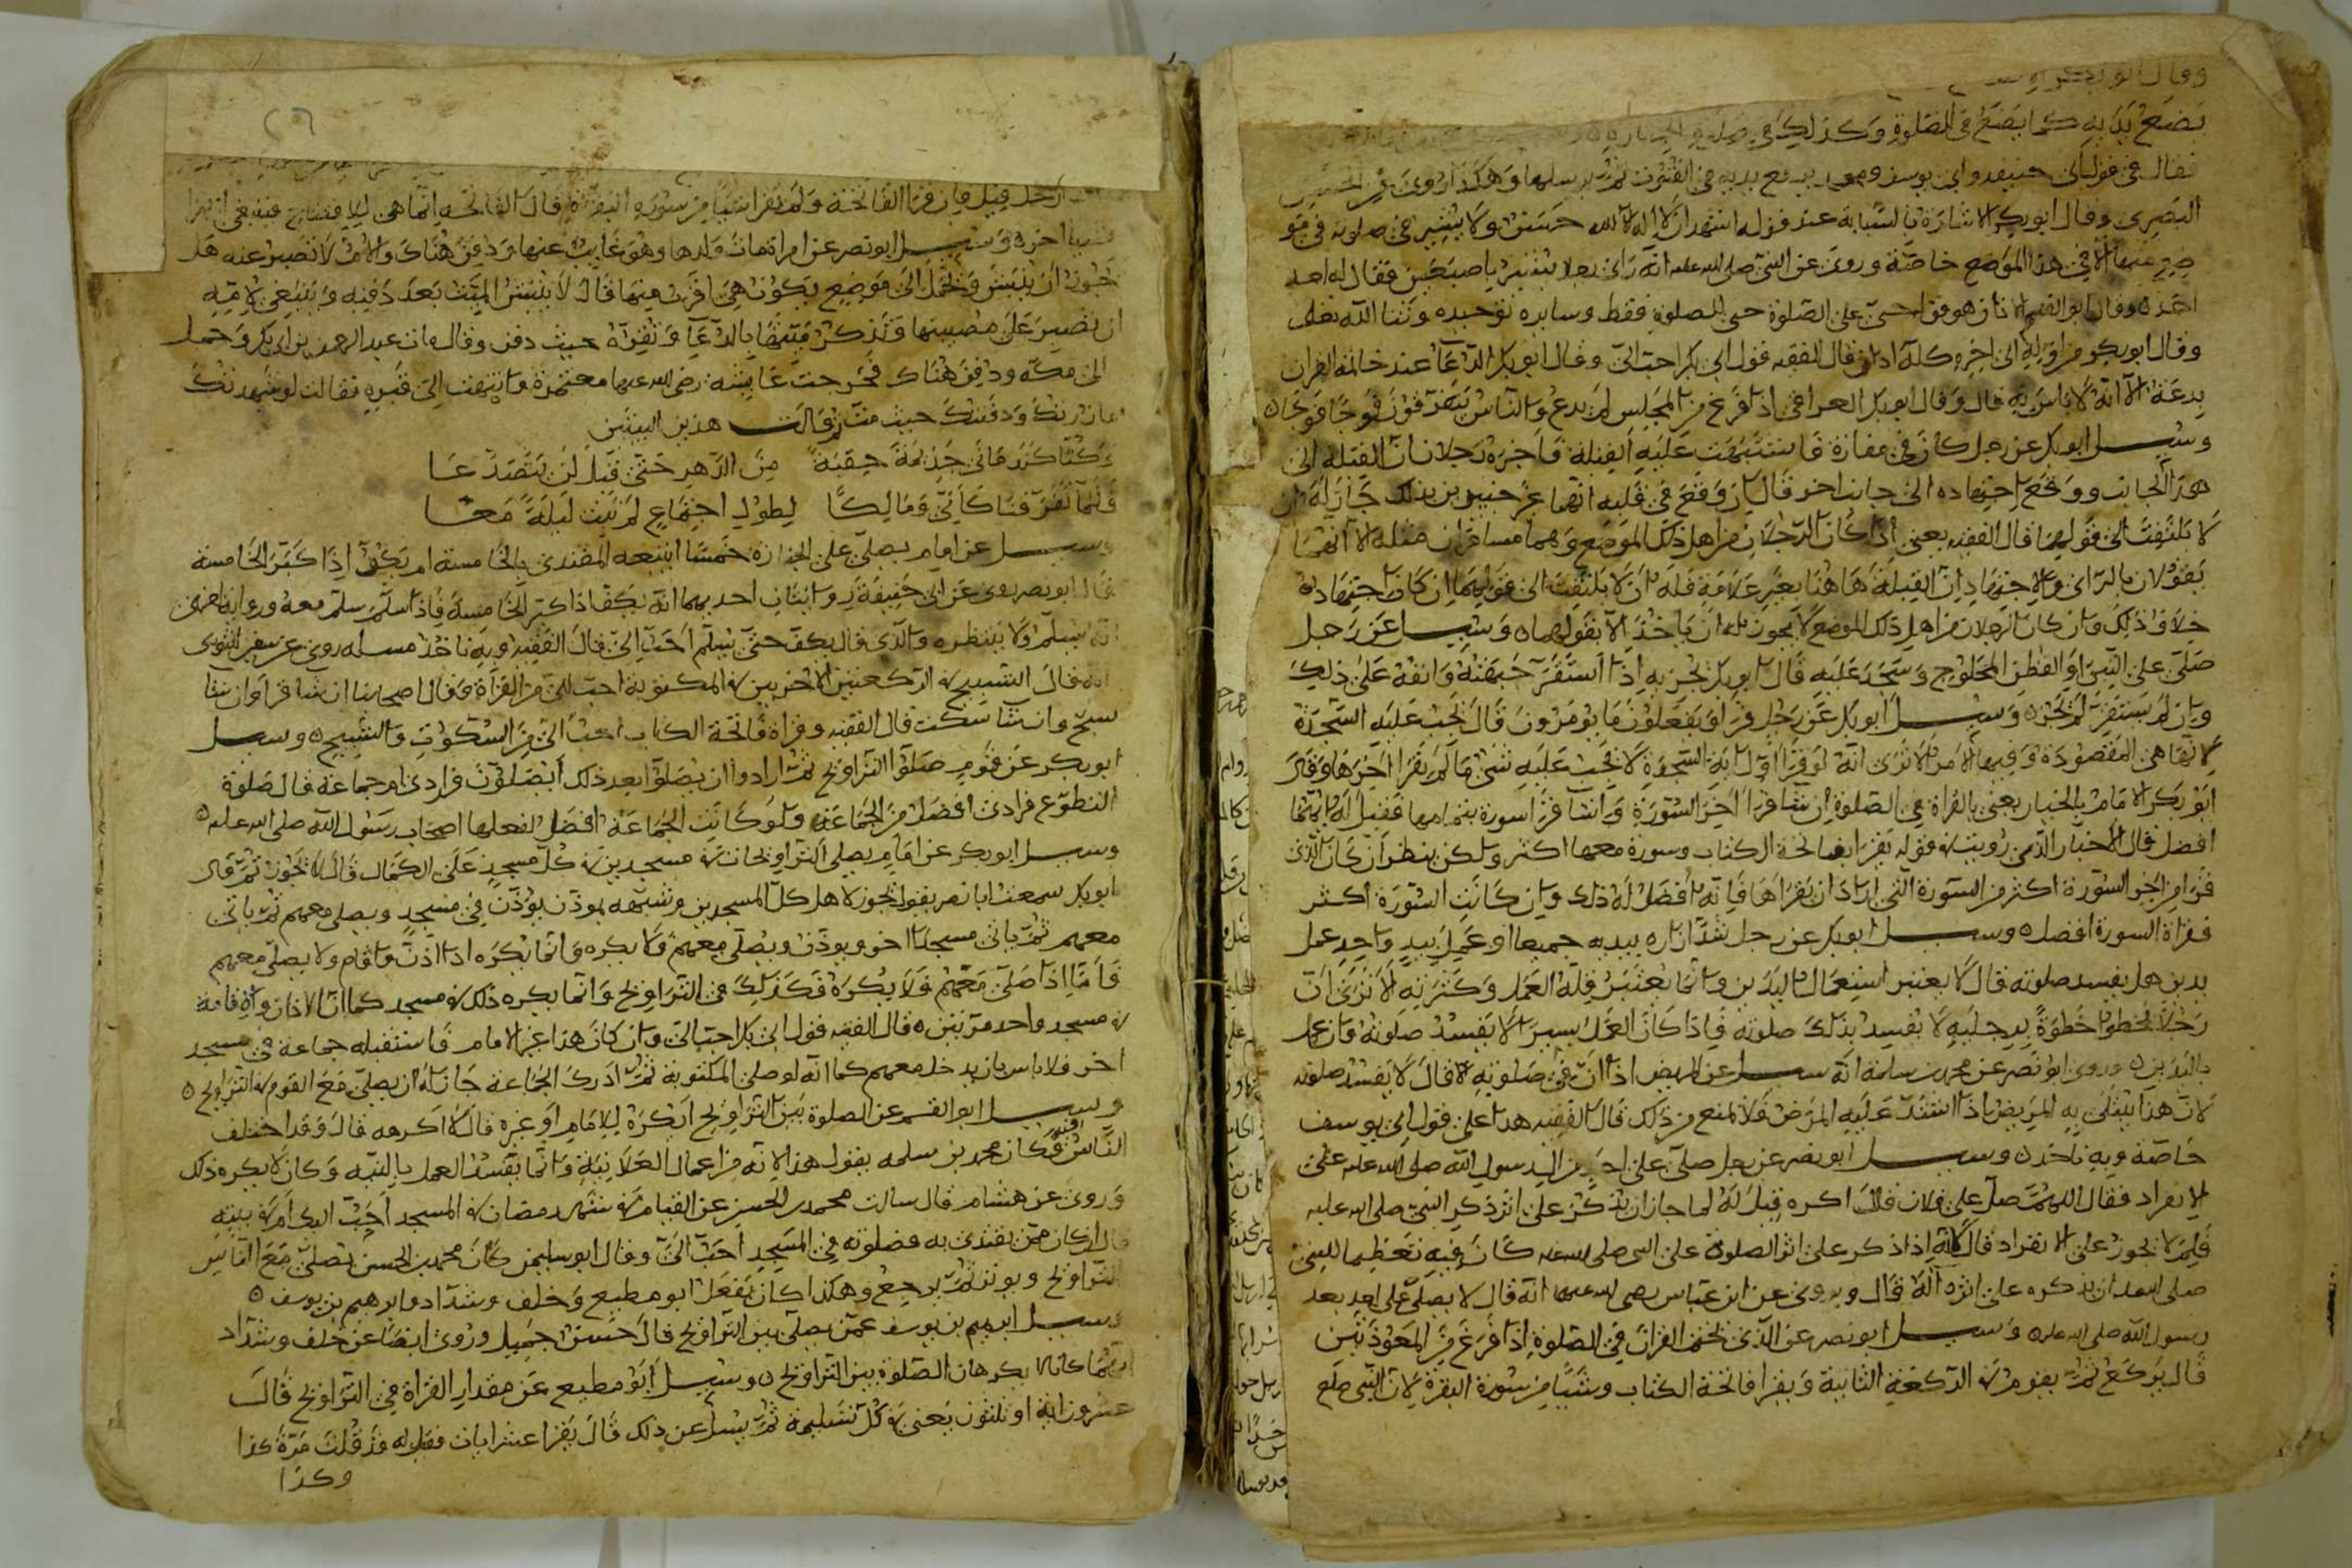 وقال ابو بكر
يضع يديه كما يضع في الصلوة وكذلك في صلوة الجنازة
فقال في قول ابي حنيفة وابي يوسف ومحمد يرفع يديه في القنوت ثم يرسلهما وهكذا روى عن الحسن
البصرى وقال ابو بكر الاشارة بالسبابة عند قوله اشهد ان لا اله الا الله حسن ولا يشير في صلوته في مو
ضع غيرها الا في هذا الموضع خاصة وروى عن النبي صلى الله عليه انه راى رجلا يشير باصبعين فقال له احد
احد ه وقال ابو القسم الاذان هو قوله حي على الصلوة حي للصلوة فقط وسايره توحيده وثنا الله تعالى
وقال ابو بكر من اوله الى اخره كله اذان قال الفقيه قول ابي بكر احب الى وقال ابو بكر الدعا عند خاتمة القران
بدعة الا انه لا باس به قال وقال ابو بكر العراقي اذا فرغ من المجلس لم يدع والناس يتفرقون فوجا فوجا ه
وسيل ابو بكر عن رجل كان في مفازة فاشتبهت عليه القبلة فاخبره رجلان ان القبلة الى
هذا الجانب ووقع اجتهاده الى جانب اخر قال ان وقع في قلبه انهما غير خبيرين بذلك جاز له ان
لا يلتفت الى قولهما قال الفقيه يعني اذا كان الرجلان من اهل ذلك الموضع وهما مسافران مثله لا انهما
يقولان بالراى والاجتهاد ان القبلة هاهنا بغير علامة فله ان لا يلتفت الى قولهما ان كان اجتهاده
خلاف ذلك وان كان الرجلان من اهل ذلك الموضع لا يجوز له ان ياخذ الا بقولهما ه وسيل عن رجل
صلى على التبن او القطن المحلوج وسجد عليه قال ابو بكر يجزيه اذا استقر جبهته وانفه على ذلك
وان لم يستقر لم يجز ه وسيل ابو بكر عن رجل قرا ويفعلون ما يومرون قال يجب عليه السجدة
لانها هي المقصودة وفيها الامر الا ترى انه لو قرا اول اية السجدة لا يجب عليه شي ما لم يقرا اخرها وقال
ابو بكر الامام بالخيار يعني بالقراة في الصلوة ان شا قرا اخر السورة وان شا قرا سورة بتمامها فقيل له ايهما
افضل قال الاخبار الذى رويت في قوله يقرا بفاتحة الكتاب وسورة معها اكثر ولكن ينظر ان كان الذى
قرا من اخر السورة اكثر من السورة التي اراد ان يقراها فانه افضل له ذلك وان كانت السورة اكثر
فقراة السورة افضل ه وسيل ابو بكر عن رجل شد ازاره بيديه جميعا او عمل بيد واحد عمل
يدين هل يفسد صلوته قال لا يعتبر استعمال اليدين وانما يعتبر قلة العمل وكثرته الا ترى ان
رجلا يخطوا خطوة برجليه لا يفسد بذلك صلوته فاذا كان العمل يسيرا لا يفسد صلوته وان عمل
باليدين ه وروى ابو نصر عن محمد بن سلمة انه سيل عن المريض اذا ان في صلوته لا قال لا يفسد صلوته
لان هذا يبتلى به المريض اذا اشتد عليه المرض فلا يمنع من ذلك قال الفقيه هذا على قول ابي يوسف
خاصة وبه ناخذ ه وسيل ابو نصر عن رجل صلى على احد من ال رسول الله صلى الله عليه على
الانفراد فقال اللهم صل على فلان قال اكره قيل له لما جاز ان يذكر على اثر ذكر النبي صلى الله عليه
فلم لا يجوز على الانفراد قال لانه اذا ذكر على اثر الصلوة على النبي صلى الله عليه كان فيه تعظيما للنبي
صلى الله عليه ان يذكره على اثره اله قال وروى عن ابن عباس رضى الله عنهما انه قال لا يصلى على احد بعد
رسول الله صلى الله عليه ه وسيل ابو نصر عن الذى يختم القران في الصلوة اذا فرغ من المعوذتين
قال يركع ثم يقوم في الركعة الثانية ويقرا فاتحة الكتاب وشيا من سورة البقرة لان النبي صلع
٢٦
ارحل قيل فان قرا الفاتحة ولم يقرا شيا من سورة البقرة قال الفاتحة انما هي للافتتاح فينبغي ان يقرا
شيا اخر ه وسيل ابو نصر عن امراة مات ولدها وهو غايب عنها ودفن هناك والام لا تصبر عنه هل
يجوز ان ينبش ويحمل الى موضع يكون هي اقرب منها قال لا ينبش الميت بعد دفنه وينبغي لامه
ان تصبر على مصيبتها وتذكر ميتها بالدعا وتقراه حيث دفن وقال مات عبد الرحمن بن ابي بكر وحمل
الى مكة ودفن هناك فخرجت عايشة رضى الله عنها معتمرة وانتهت الى قبره فقالت لو شهدتك
ما زرتك ودفنتك حيث مت ثم قالت هذين البيتين
وكنا كندماني جذيمة حقبة من الدهر حتى قيل لن يتصدعا
فلما تفرقنا كاني ومالكا لطول اجتماع لم نبت ليلة معا
وسيل عن امام يصلى على الجنازة خمسا ايتبعه المقتدى بالخامسة ام يكف اذا كبر الخامسة
قال ابو نصر روى عن ابي حنيفة روايتان احديهما انه يكف اذا كبر الخامسة فاذا سلم سلم معه ورواية اخرى
انه يسلم ولا ينتظره والذى قال يكف حتى يسلم احب الى قال الفقيه وبه ناخذ مسله روى عن سفين الثورى
انه قال التسبيح في الركعتين الاخريين في المكتوبة احب الى من القراة وقال اصحابنا ان شا قرا وان شا
سبح وان شا سكت قال الفقيه وقراة فاتحة الكتاب احب الى من السكوت والتسبيح ه وسيل
ابو بكر عن قوم صلوا التراويح ثم ارادوا ان يصلوا بعد ذلك ايصلون فرادى ام جماعة قال صلوة
التطوع فرادى افضل من الجماعة ولو كانت الجماعة افضل لفعلها اصحاب رسول الله صلى الله عليه ه
وسيل ابو بكر عن امام يصلي التراويح في مسجدين في كل مسجد على الكمال قال لا يجوز ثم قال
ابو بكر سمعت ابا نصر يقول يجوز لاهل كل المسجدين وشبهه بموذن يؤذن في مسجد ويصلى معهم ثم ياتى
معهم ثم ياتى مسجدا اخر ويوذن ويصلى معهم ولا يكره وانما يكره اذا اذن واقام ولا يصلى معهم
فاما اذا صلى معهم فلا يكره فكذلك في التراويح وانما يكره ذلك في مسجد كما ان الاذان والاقامة
في مسجد واحد مرتين ه قال الفقيه قول ابي بكر احب الى وان كان هذا غير الامام فاستقبله جماعة في مسجد
اخر فلا باس بان يدخل معهم كما انه لو صلى المكتوبة ثم ادرك الجماعة جاز له ان يصلى مع القوم في التراويح ه
وسيل ابو القسم عن الصلوة بين التراويح ايكره للامام او غيره قال لا اكرهه قال وقد اختلف
الناس فيه فكان محمد بن سلمه يقول هذا لانه من اعمال العلانية وانما يفسد العمل بالنيه وكان لا يكره ذلك
وروى عن هشام قال سالت محمد بن الحسن عن القيام في شهر رمضان في المسجد احب اليك ام في بيته
قال ان كان ممن يقتدى به فصلوته في المسجد احب الى وقال ابو سليمن كان محمد بن الحسن يصلى مع الناس
التراويح ويوتر ثم يرجع وهكذا كان يفعل ابو مطيع وخلف وشداد وابرهيم بن يوسف ه
وسيل ابرهيم بن يوسف عمن يصلى بين التراويح قال حسن جميل وروى ايضا عن خلف وشداد
انهما كانا يكرهان الصلوة بين التراويح ه وسيل ابو مطيع عن مقدار القراة في التراويح قال
عشرون اية او ثلثون يعني في كل تسليمة ثم يسل عن ذلك قال يقرا عشر ايات فقيل له قد قلت مرة كذا
وكذا